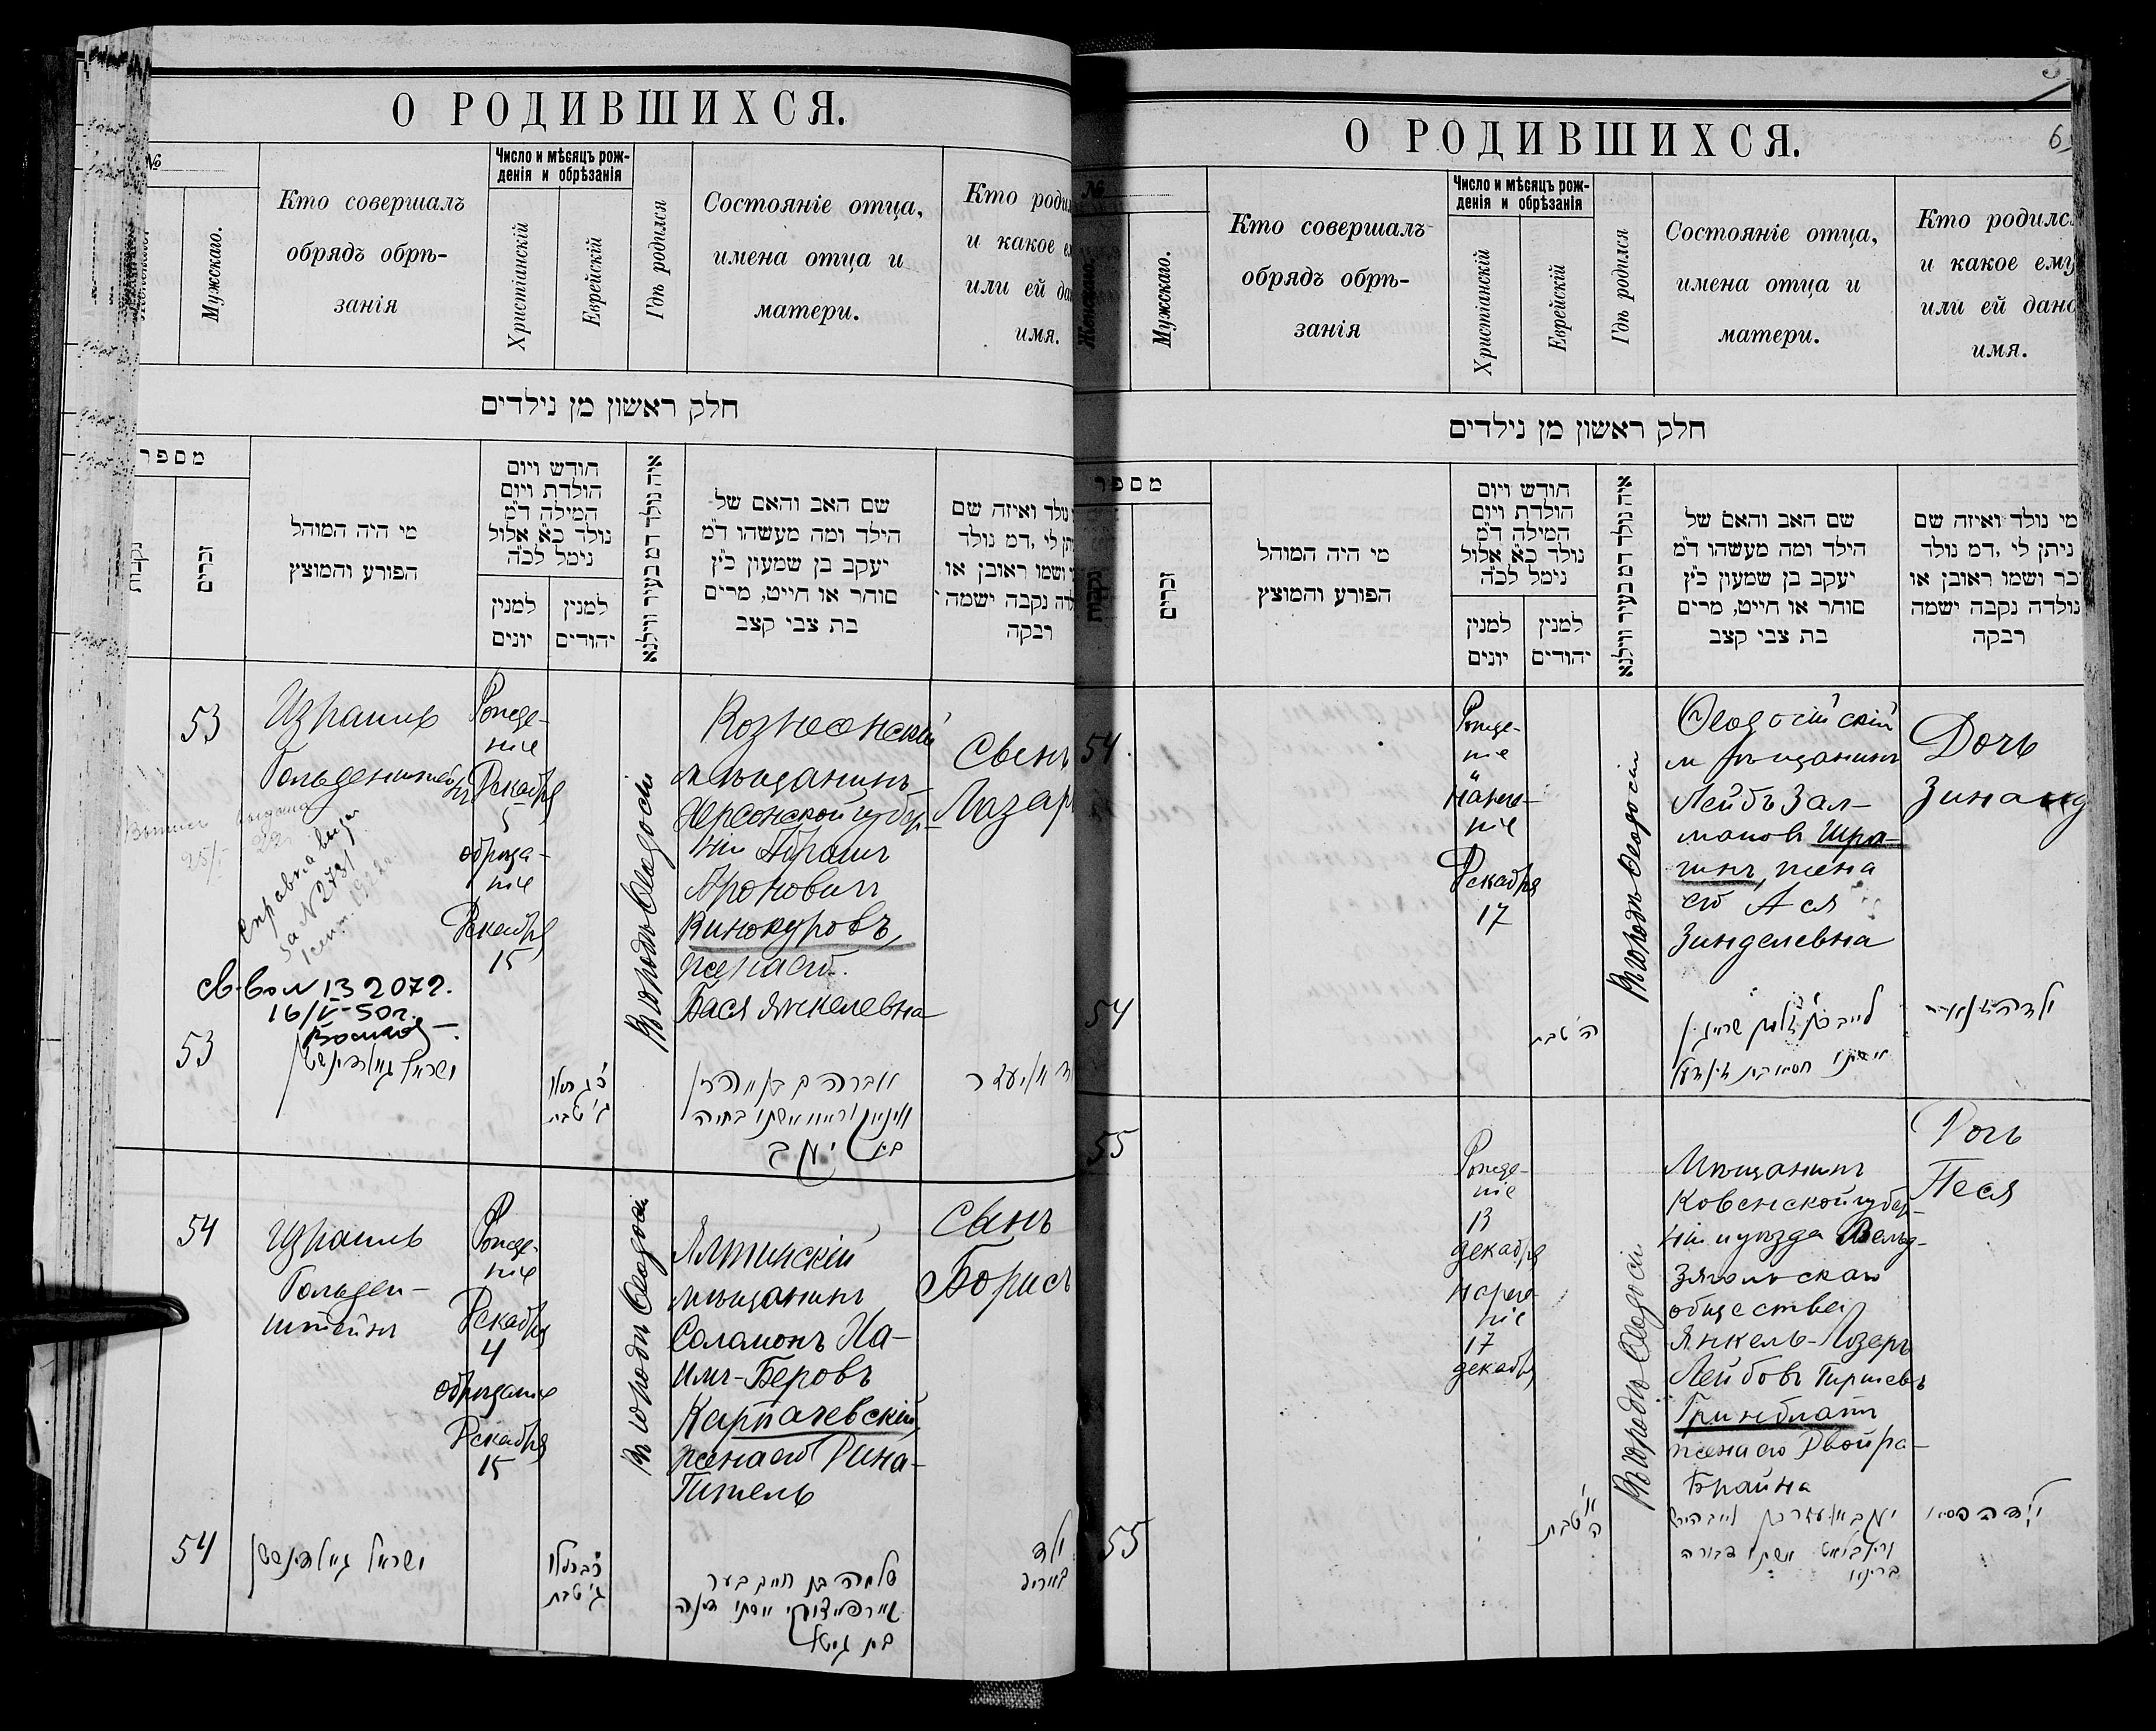 О РОДИВШИХСЯ.
№
Мужскаго.
Кто совершалъ
обрядъ обрѣ-
занія
Число и мѣсяцъ рож-
денія и обрѣзанія
Христіанскій
Еврейскій
Гдѣ родился
Состояніе отца,
имена отца и
матери.
Кто роди
и какое е
или ей да
имя.
חלק ראשון מן נילדים
מספר
זכרים
מי היה המוהל
הפורע והמוצץ
חודש ויום
הולדת ויום
המילה ד״מ
נולד כ״א אלול
נימל לכ״ה
למנין
יונים
למנין
יהודים
איה נולד דמ בעיר ווילנא
שם האב והאם של
הילד ומה מעשהו ד״מ
יעקב בן שמעון כ״ץ
סוחר או חייט, מרים
בת צבי קצב
נולד ואיזה שם
ניתן לי, דמ נולד
ושמו ראובן או
נקבה ישמה
רבקה
53
Израиль
Гольденштейнъ
Рожде-
ніе
Декабря
5
обрѣза-
ніе
Декабря
15
Въ городѣ Ѳеодосіи
Вознесенскій
мѣщанинъ
Херсонской губер-
ніи Абрамъ
Ароновичъ
Винокуровъ,
жена его
Бася Янкелевна
Сынъ
Лазар
Справка выдана
за № 2731
св-во № 132072.
16/V-50г.
53
ישראל
ג׳ טבת
54
Израиль
Гольден-
штейнъ
Рожде-
ніе
Декабря
4
обрѣзаніе
Декабря
15
Въ городѣ Ѳеодосіи
Ялтинскій
мѣщанинъ
Соломонъ Ха-
имъ-Беровъ
Карпачевскій,
жена его Дина-
Гитель
Сынъ
Борисъ
54
ישראל
ג׳ טבת
ילד
О РОДИВШИХСЯ.
6
№
Женскаго.
Мужскаго.
Кто совершалъ
обрядъ обрѣ-
занія
Число и мѣсяцъ рож-
денія и обрѣзанія
Христіанскій
Еврейскій
Гдѣ родился
Состояніе отца,
имена отца и
матери.
Кто родилс
и какое ему
или ей дано
имя.
חלק ראשון מן נילדים
מספר
נקבות
זכרים
מי היה המוהל
הפורע והמוצץ
חודש ויום
הולדת ויום
המילה ד״מ
נולד כ״א אלול
נימל לכ״ה
למנין
יונים
למנין
יהודים
איה נולד דמ בעיר ווילנא
שם האב והאם של
הילד ומה מעשהו ד״מ
יעקב בן שמעון כ״ץ
סוחר או חייט, מרים
בת צבי קצב
מי נולד ואיזה שם
ניתן לי, דמ נולד
זכר ושמו ראובן או
נולדה נקבה ישמה
רבקה
54
Рожде-
ніе
и
нарече-
ніе
Декабря
17
Въ городѣ Ѳеодосіи
Ѳеодосійскій
мѣщанинъ
Лейбъ Зал-
мановъ Шра-
гинъ, жена
его Ася
Зинделевна
Дочь
Зинаид
54
ה׳ טבת
55
Рожде-
ніе
13
декабря
нарече-
ніе
17
декабря
Въ городѣ Ѳеодосіи
Мѣщанинъ
Ковенской губер-
ніи и уѣзда
общества
Янкель-Лозеръ
Лейбовъ Гиршевъ
Гринблатъ
жена его Двойра-
Брайна
Дочь
Песя
55
ה׳ טבת